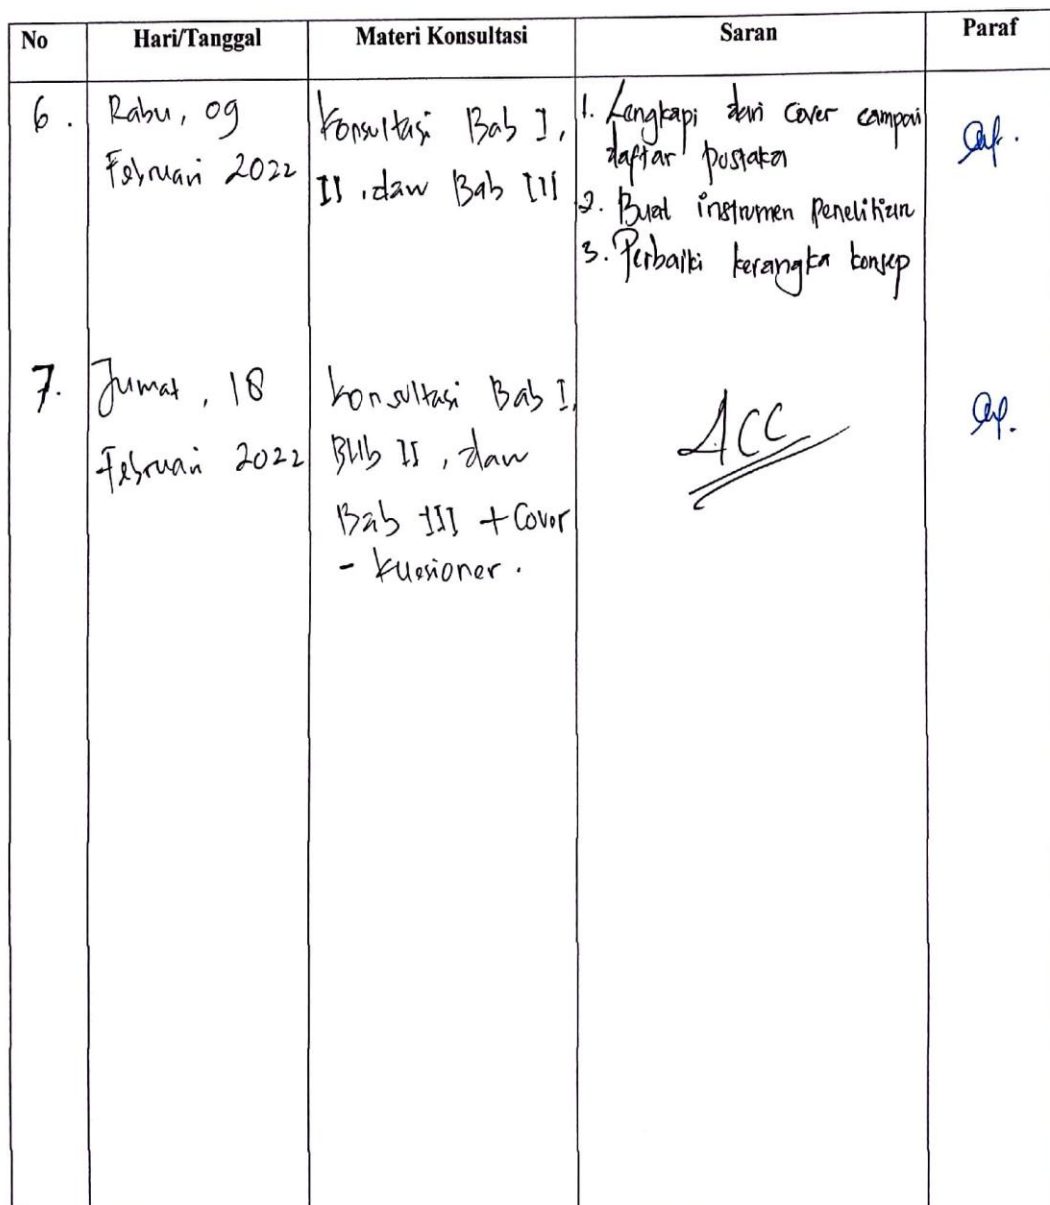 No Hari/Tanggal Materi Konsultasi Saran Paraf
6. Rabu, 09
Februari 2022
Konsultasi Bab I,
II, dan Bab III
1. Lengkapi dari cover campai
daftar pustaka
2. Buat instrumen Penelitian
3. Perbaiki kerangka konsep
7. Jumat, 18
Februari 2022
Konsultasi Bab I,
BAb II, dan
Bab III + Cover
- Kuesioner.
ACC